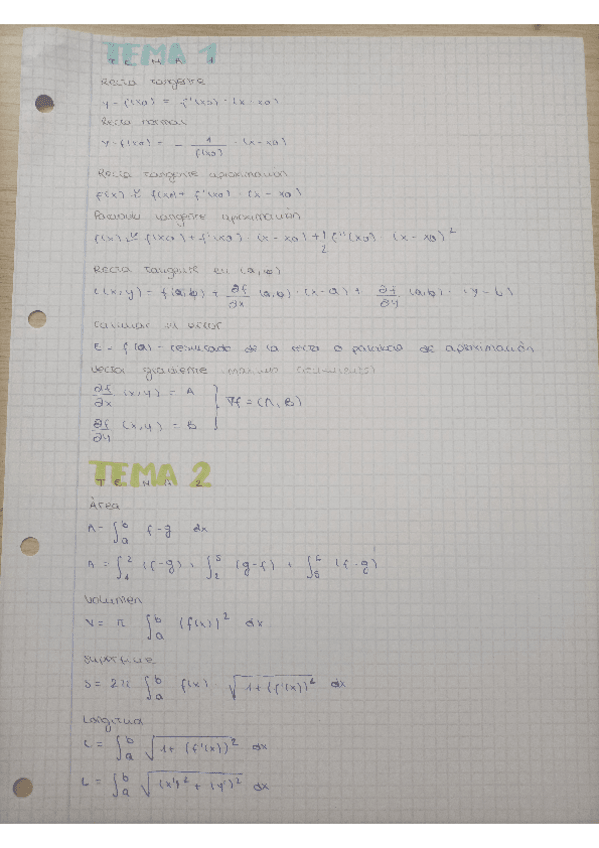 TEMA 1
TEMA 1
Recta tangente
y - f(x0) = f'(x0) · (x - x0)
Recta normal
y - f(x0) = - 1/f(x0) · (x - x0)
Recta tangente aproximación
f(x) ≃ f(x0) + f'(x0) · (x - x0)
Parábola tangente aproximación
f(x) ≃ f(x0) + f'(x0) · (x - x0) + 1/2 f''(x0) · (x - x0)²
Recta tangente en (a,b)
L(x,y) = f(a,b) + ∂f/∂x (a,b) · (x - a) + ∂f/∂y (a,b) · (y - b)
Calcular el error
E = f(a) - resultado de la recta o parábola de aproximación
Vector gradiente máximo crecimiento
∂f/∂x (x,y) = A
∂f/∂y (x,y) = B } ∇f = (A, B)
TEMA 2
TEMA 2
Área
A = ∫_a^b f - g dx
A = ∫_1^2 (f - g) + ∫_2^5 (g - f) + ∫_5^6 (f - g)
Volumen
V = π ∫_a^b (f(x))² dx
Superficie
S = 2π ∫_a^b f(x) √(1 + (f'(x))²) dx
Longitud
L = ∫_a^b √(1 + (f'(x))²) dx
L = ∫_a^b √((x')² + (y')²) dx